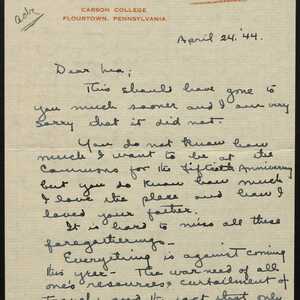 CARSON COLLEGE
FLOURTOWN, PENNSYLVANIA
April 24, '44.
Dear
This should have gone to
you much sooner and I am very
sorry that it did not.
You do not know how
much I want to be at the
Commons for the Fiftieth Anniversary
but you do know how much
I love the place and how I
loved your father.
It is hard to miss all these
foregatherings.
Everything is against coming
this year. The war need of all
one's resources, curtailment of
travel, and the